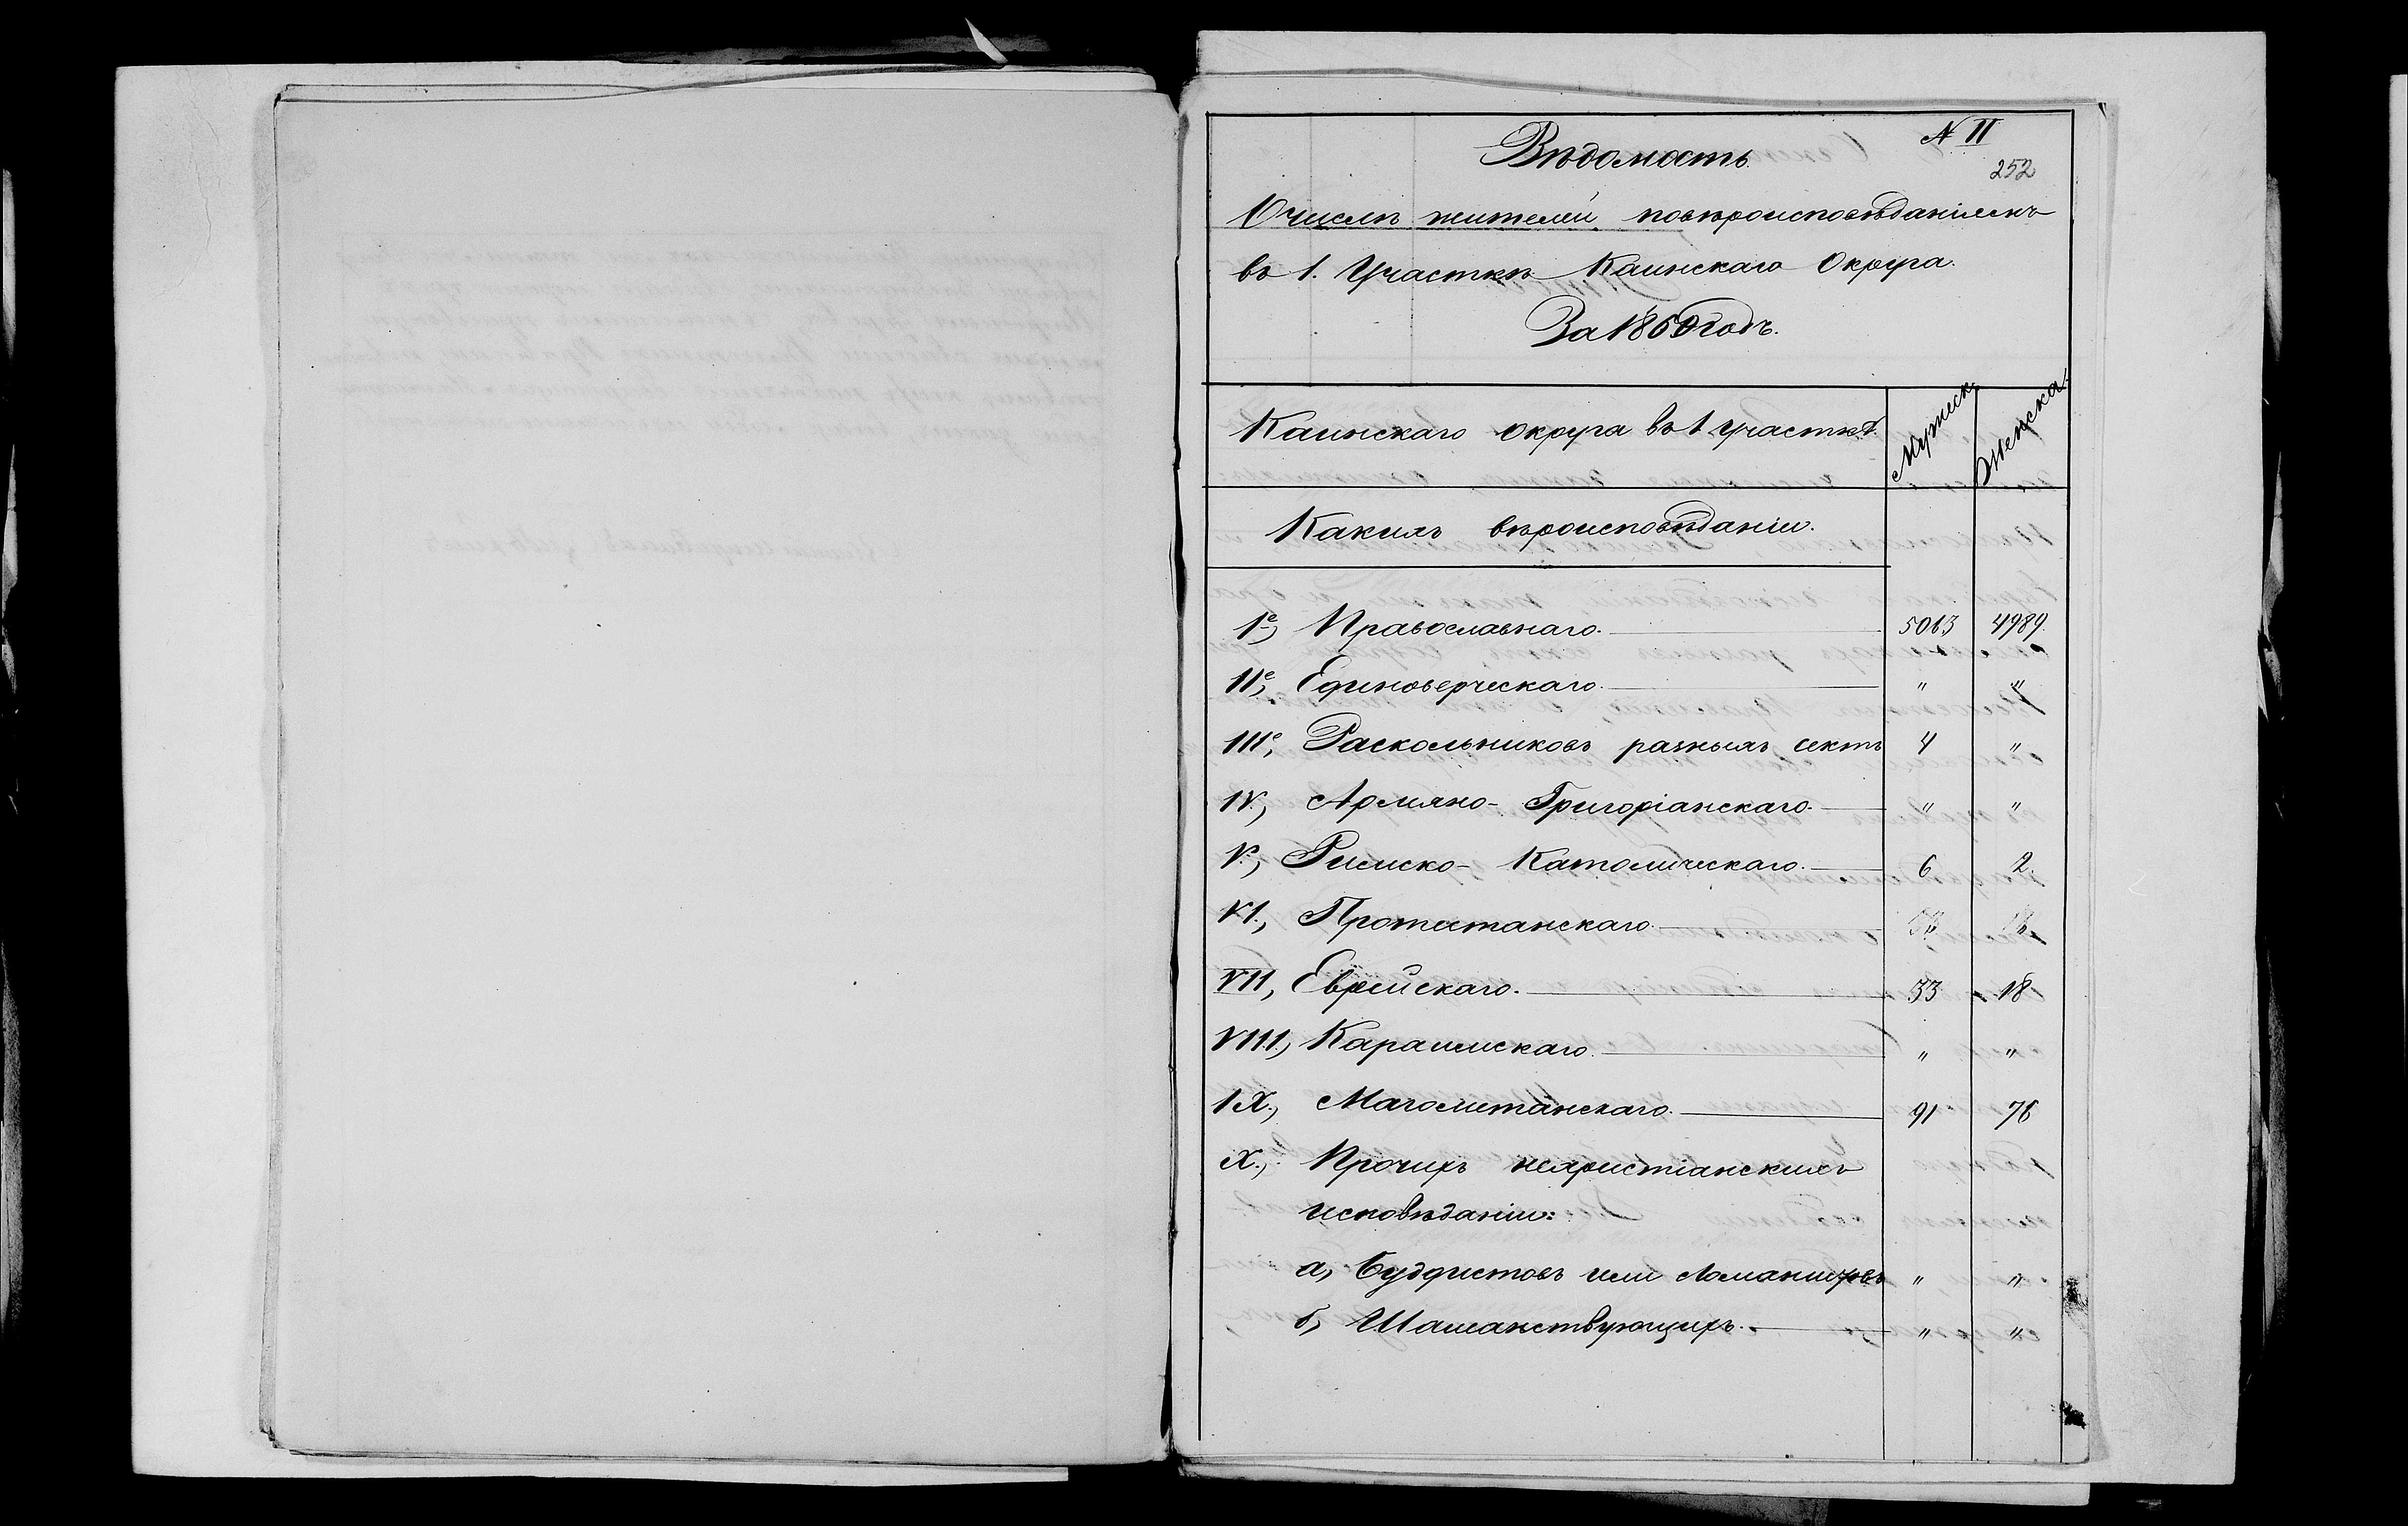 N II
Вѣдомость.
252
О числѣ жителей, повѣроисповѣданіямъ
въ 1. Участкѣ Каинскаго Округа.
За 1860 годъ.
Каинскаго округа въ 1 участкѣ. Мужеск. Женска.
Какихъ вѣроисповѣданіи.
1е, Православнаго. 5013 4989.
11е, Единоверческаго. " "
111е, Раскольниковъ разныхъ сектъ 4 "
1V, Армяно-Григоріанскаго. " "
V, Римско-Католическаго. 6 2.
V1., Протестанскаго.
V11, Еврейскаго. 33 18
V111, Караимскаго. " "
1X., Магометанскаго. 91 76
X., Прочихъ нехристіанскихъ
исповѣданіи:
а, Буддистовъ или Ламаитовъ " "
б, Шаманствующихъ. " "